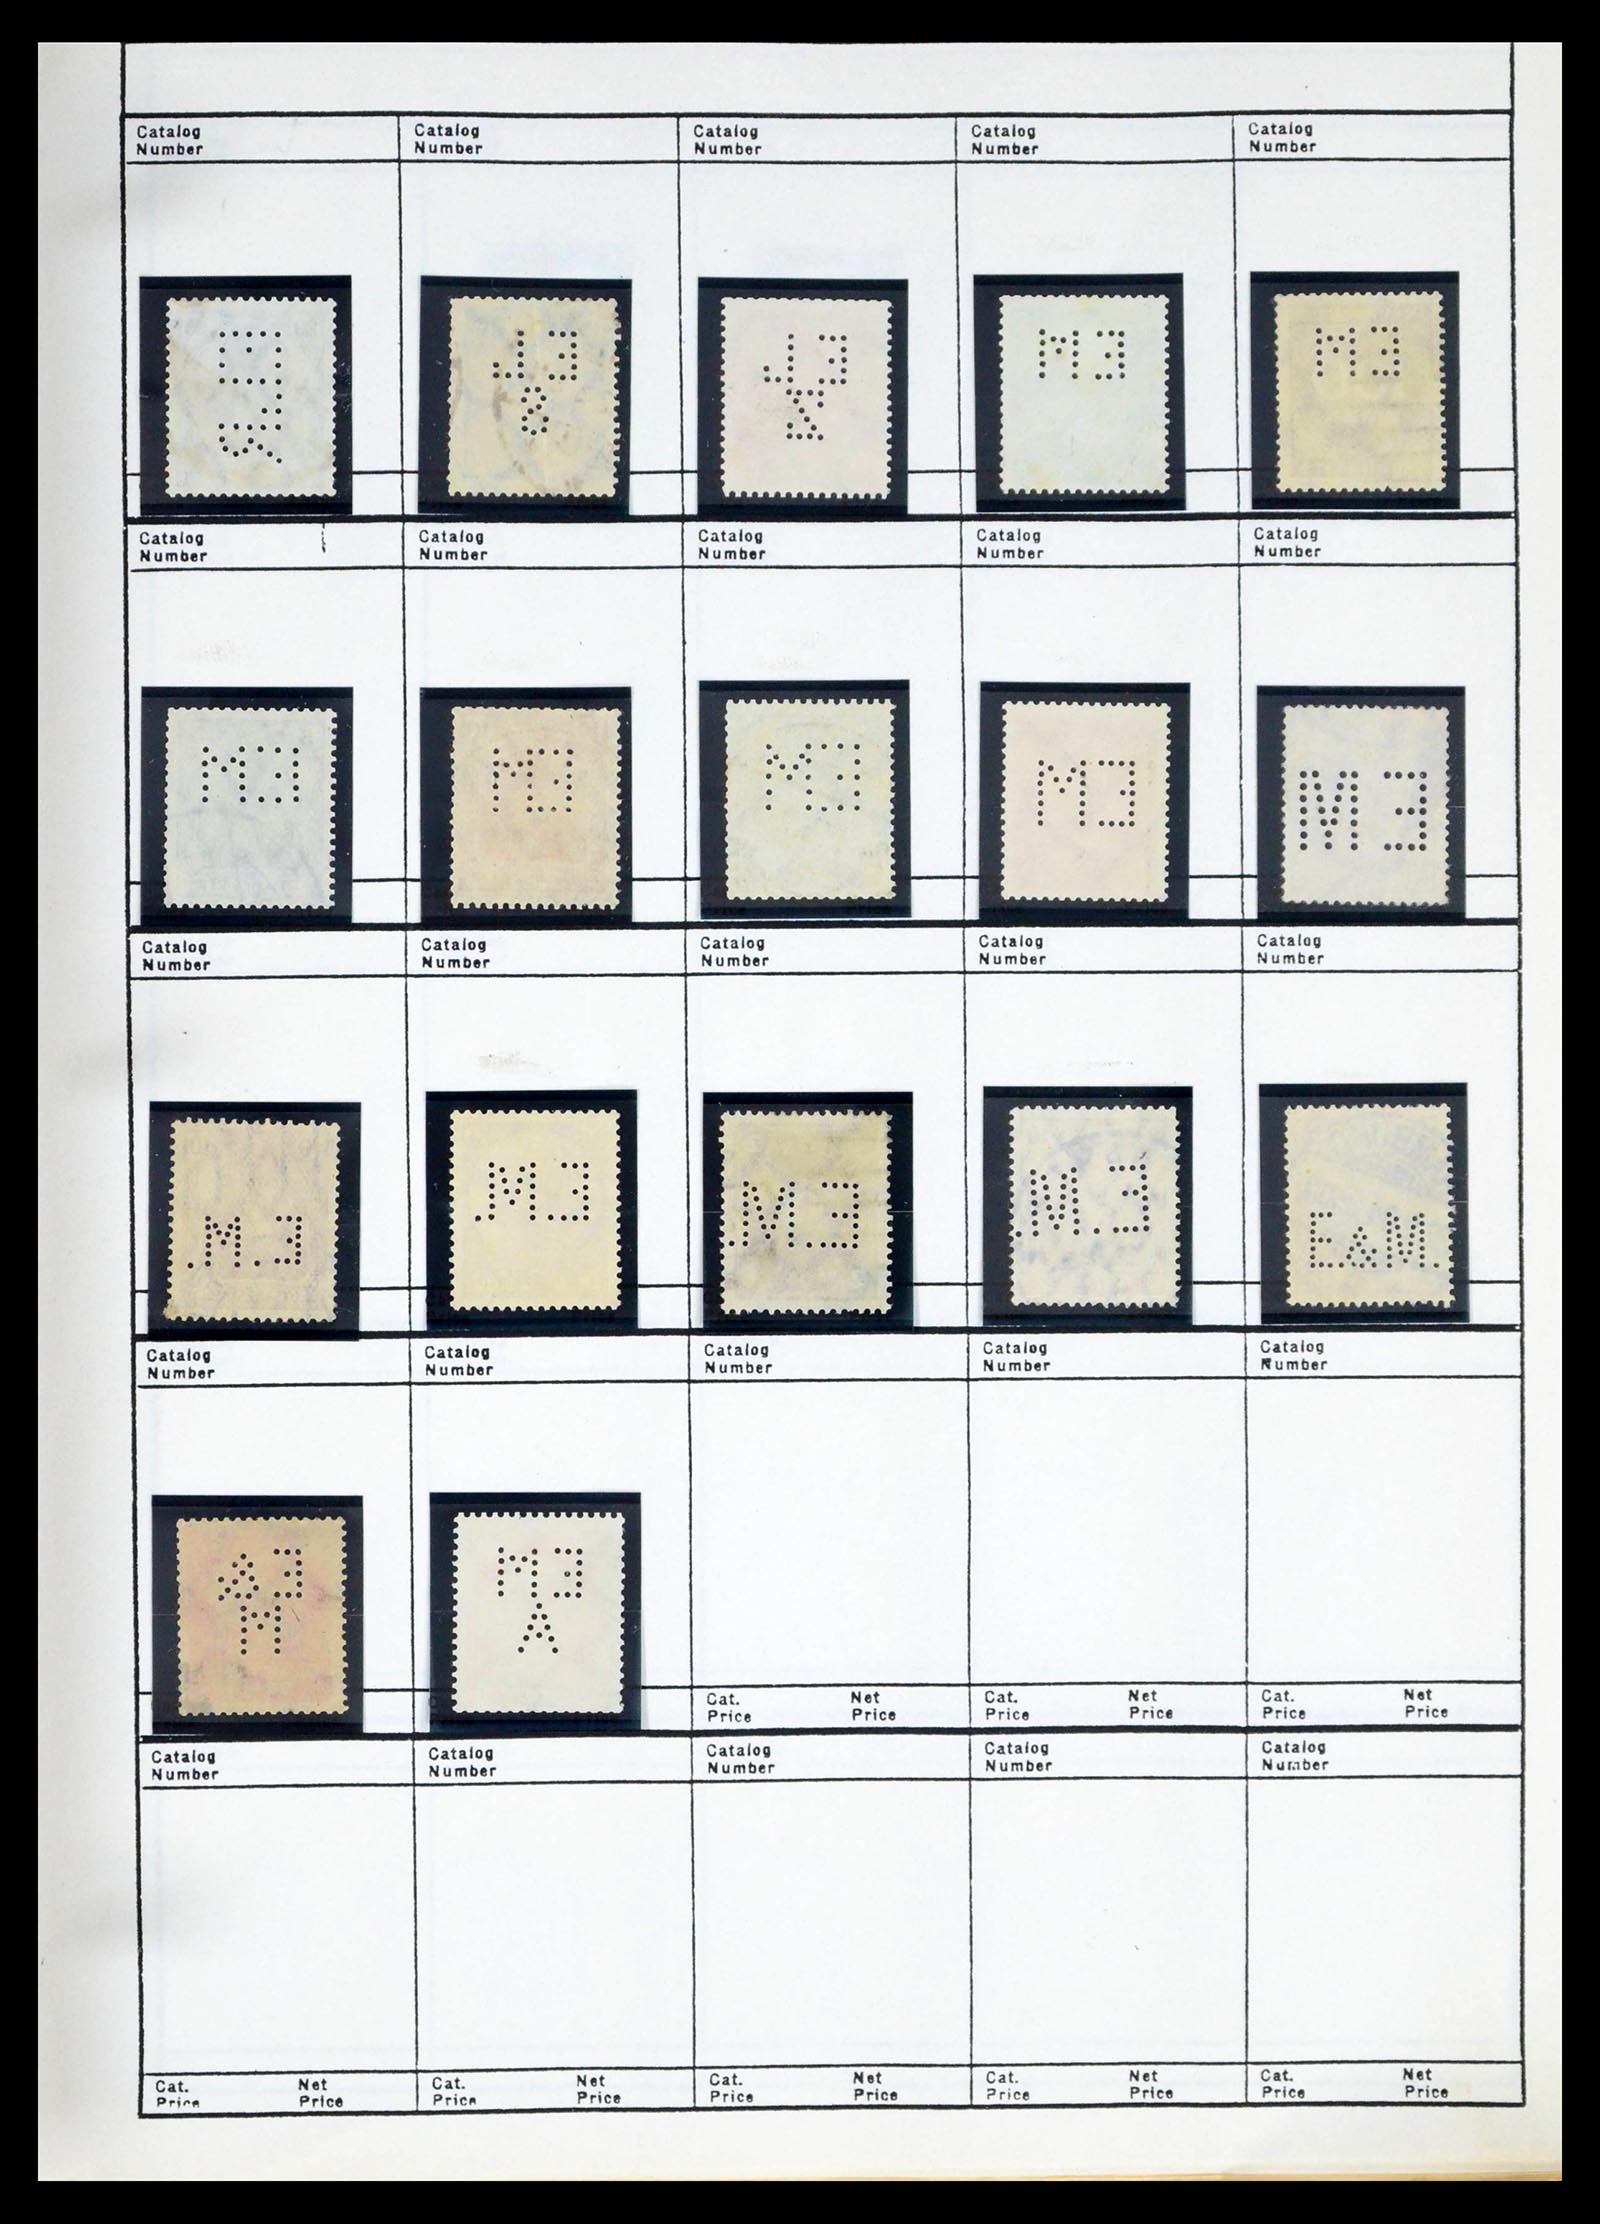 Catalog Catalog Catalog Catalog Catalog
Number Number Number Number Number
EM EM
Catalog Catalog Catalog Catalog Catalog
Number Number Number Number Number
EM EM EM EM EM
Catalog Catalog Catalog Catalog Catalog
Number Number Number Number Number
E.M. E.M. E.M. E.M. E&M.
Catalog Catalog Catalog Catalog Catalog
Number Number Number Number Number
E& EM
M A
Cat. Net Cat. Net Cat. Net
Price Price Price Price Price Price
Catalog Catalog Catalog Catalog Catalog
Number Number Number Number Number
Cat. Net Cat. Net Cat. Net Cat. Net Cat. Net
Price Price Price Price Price Price Price Price Price Price